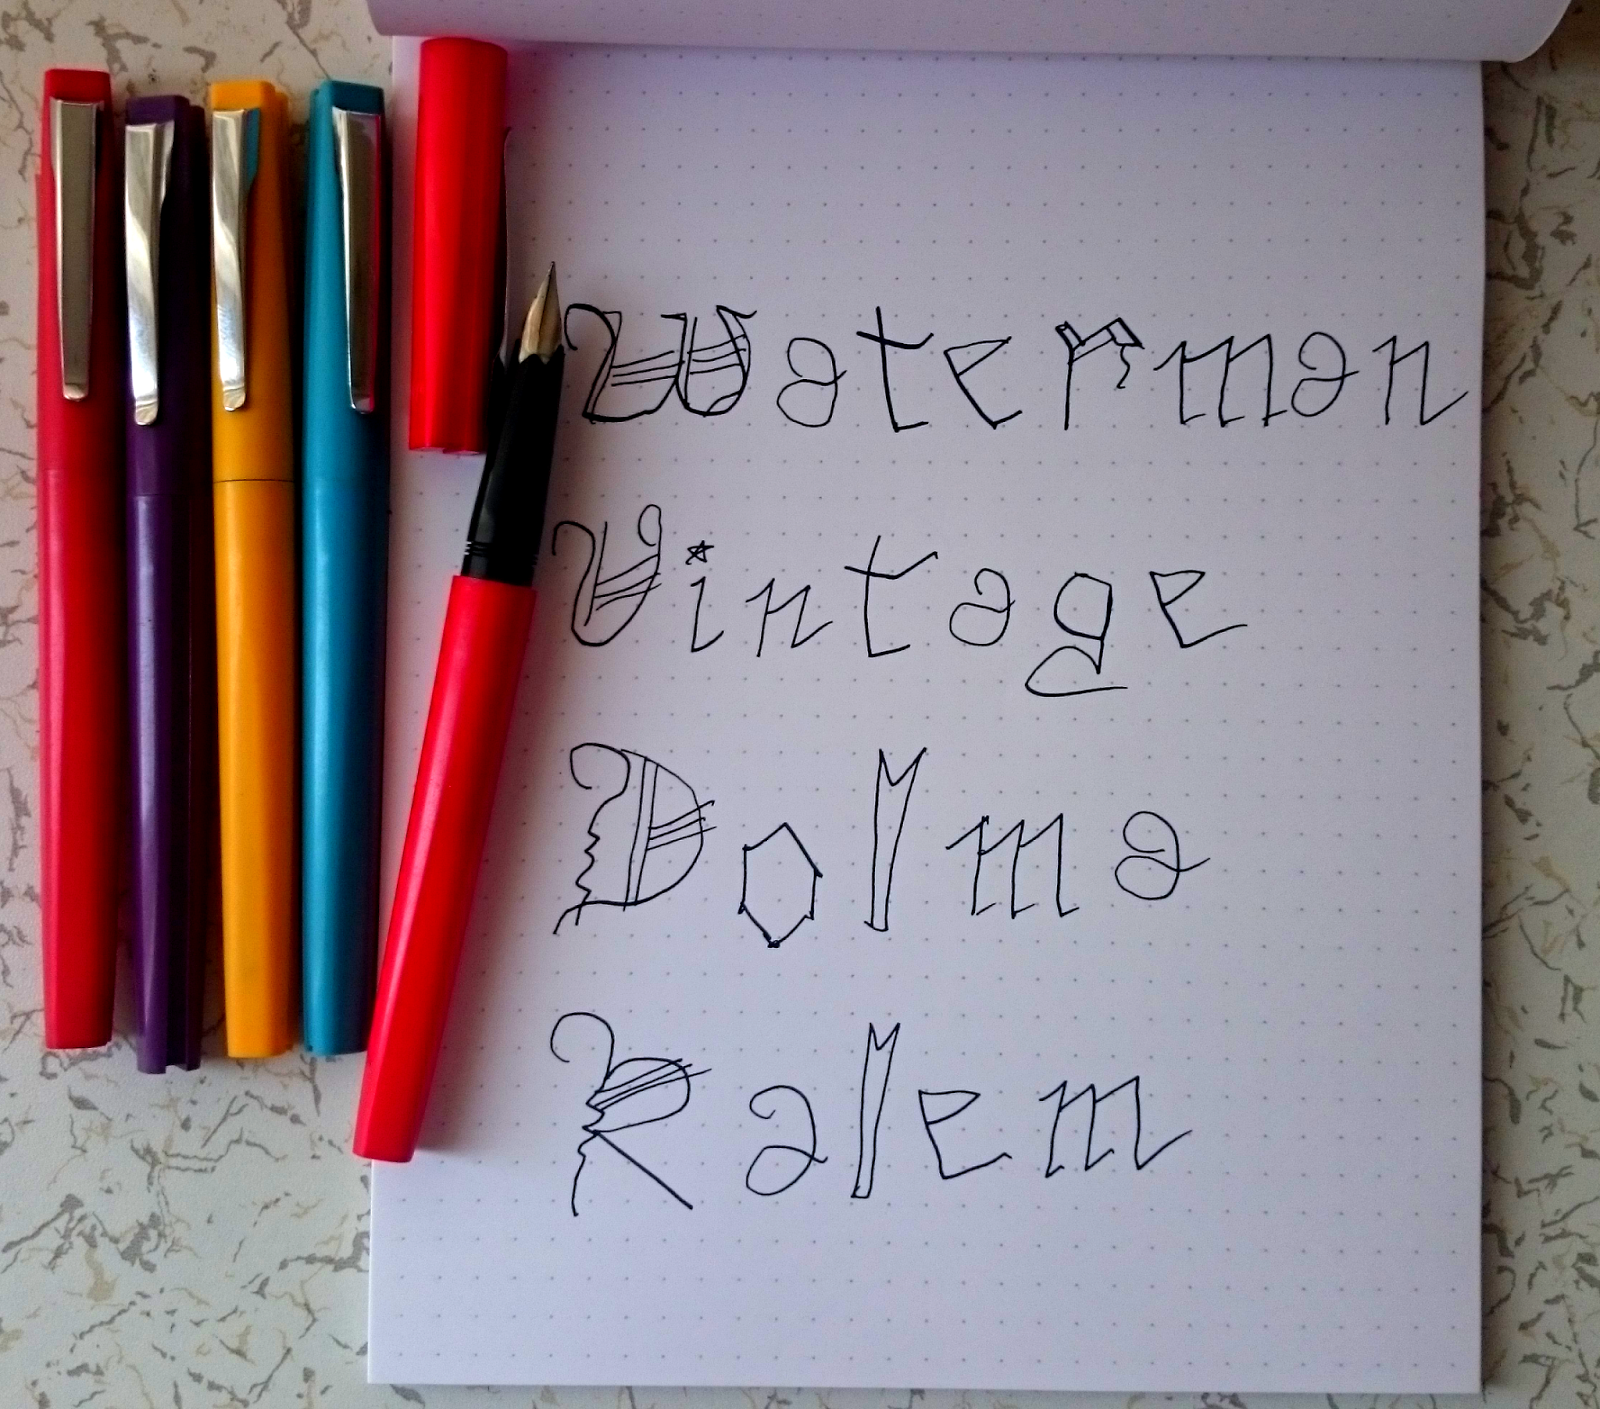 Waterman
Vintage
Dolma
Kalem